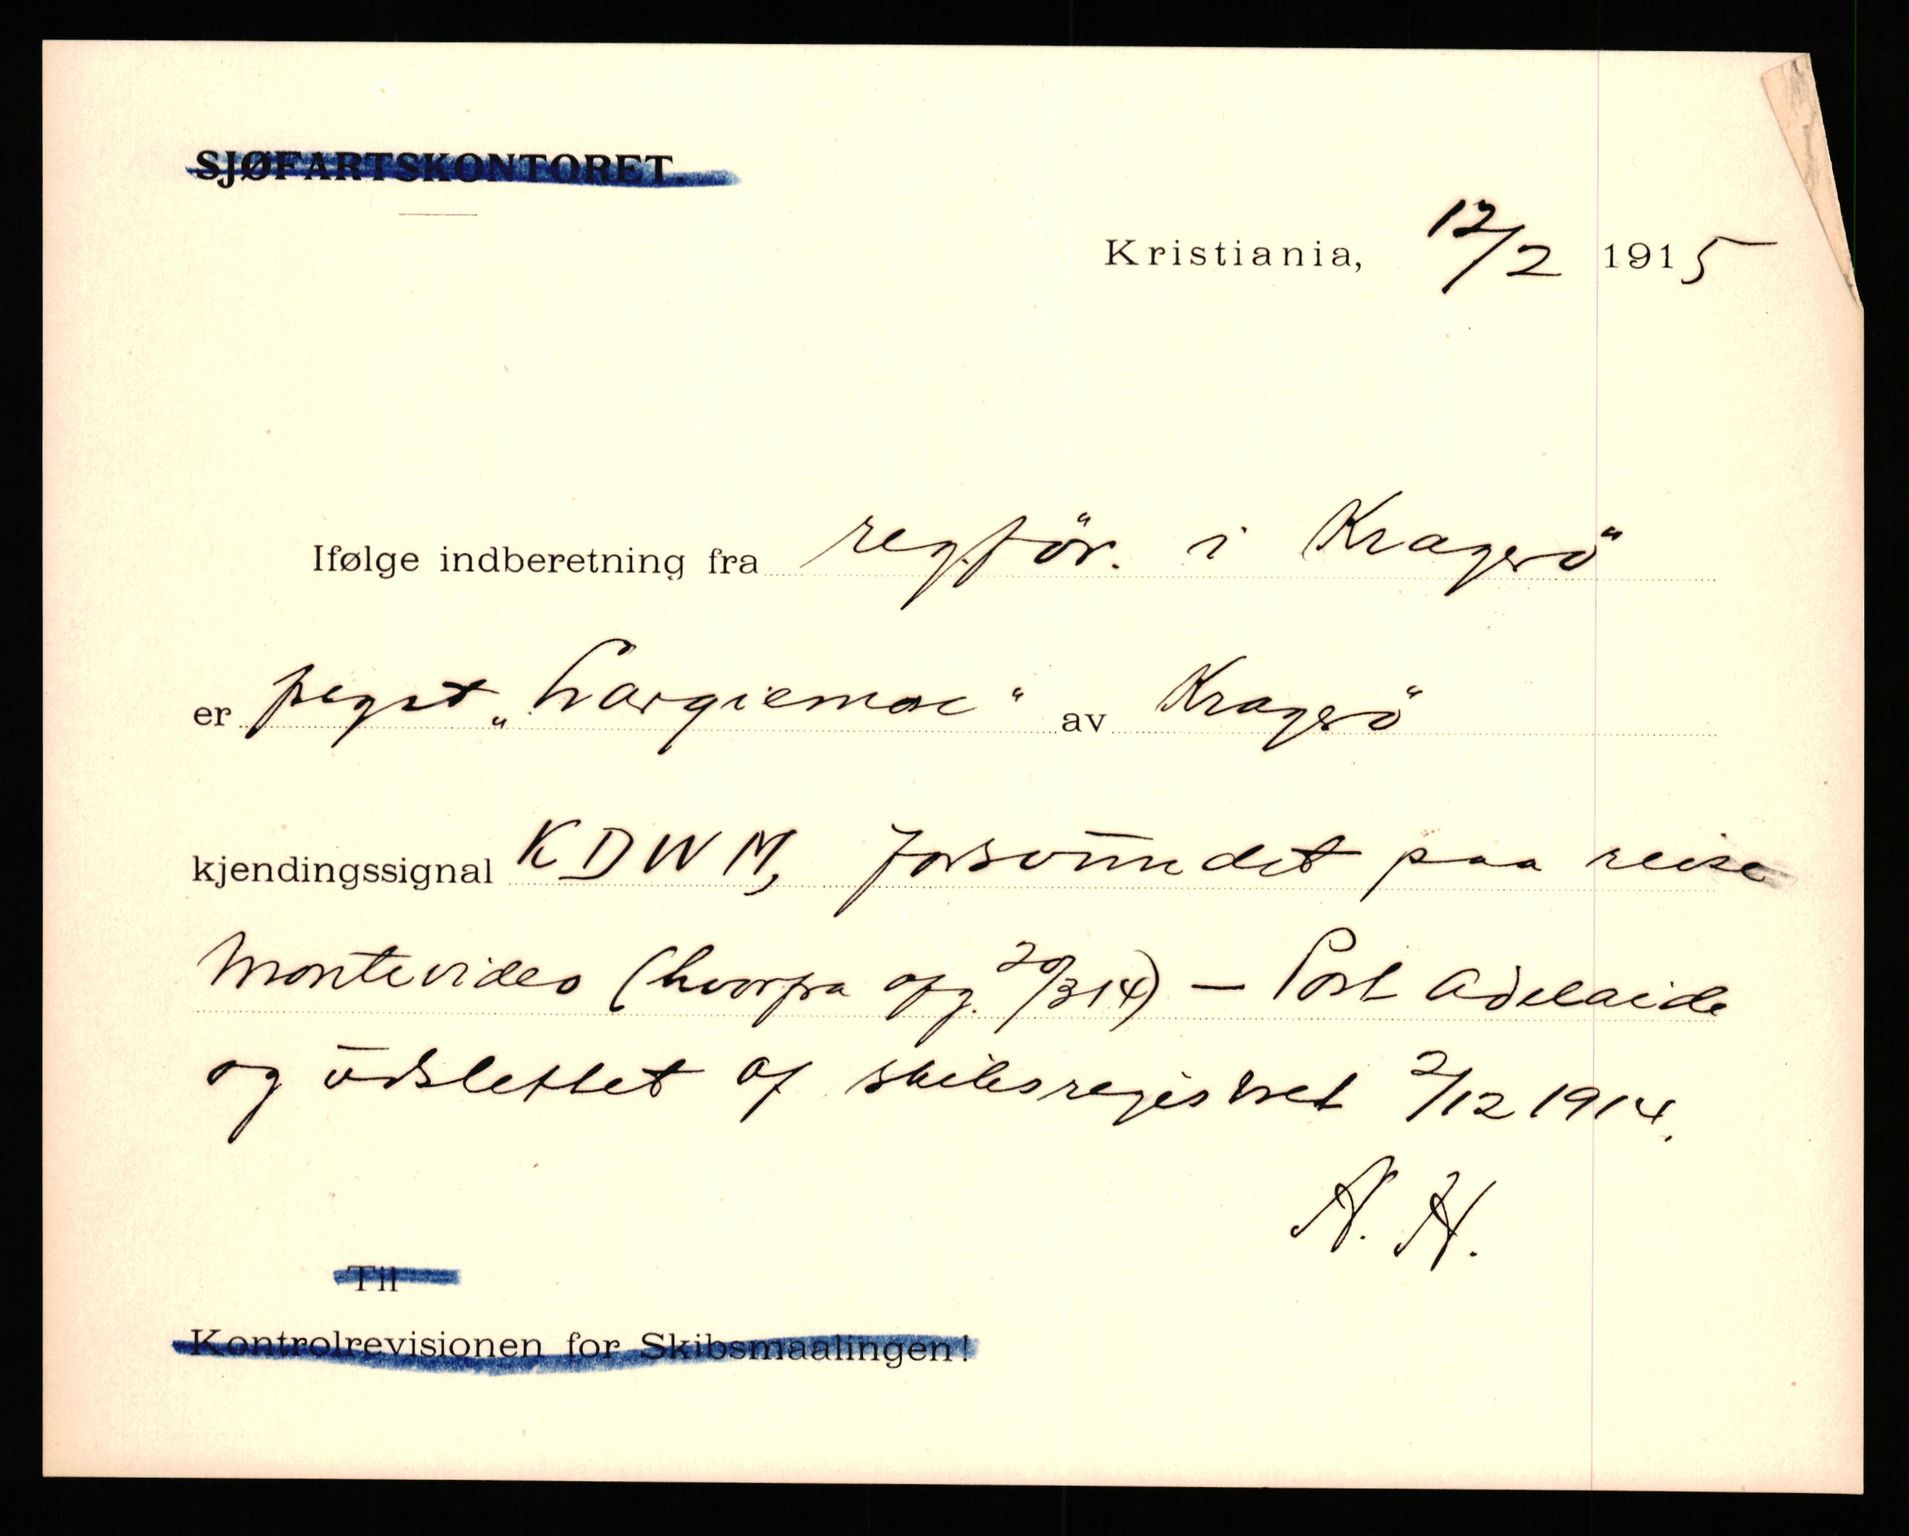 SJØFARTSKONTORET.
Kristiania, 12/2 1915
Ifølge indberetning fra reg.för. i Kragerö
er „Largiemore“ av Kragerö
kjendingssignal KDWM, forsvundet paa reise
Montevideo (hvorfra afg. 20/3 14) — Port Adelaide
og udslettet af skibsregistret 2/12 1914.
N. H.
Til
Kontrolrevisionen for Skibsmaalingen!